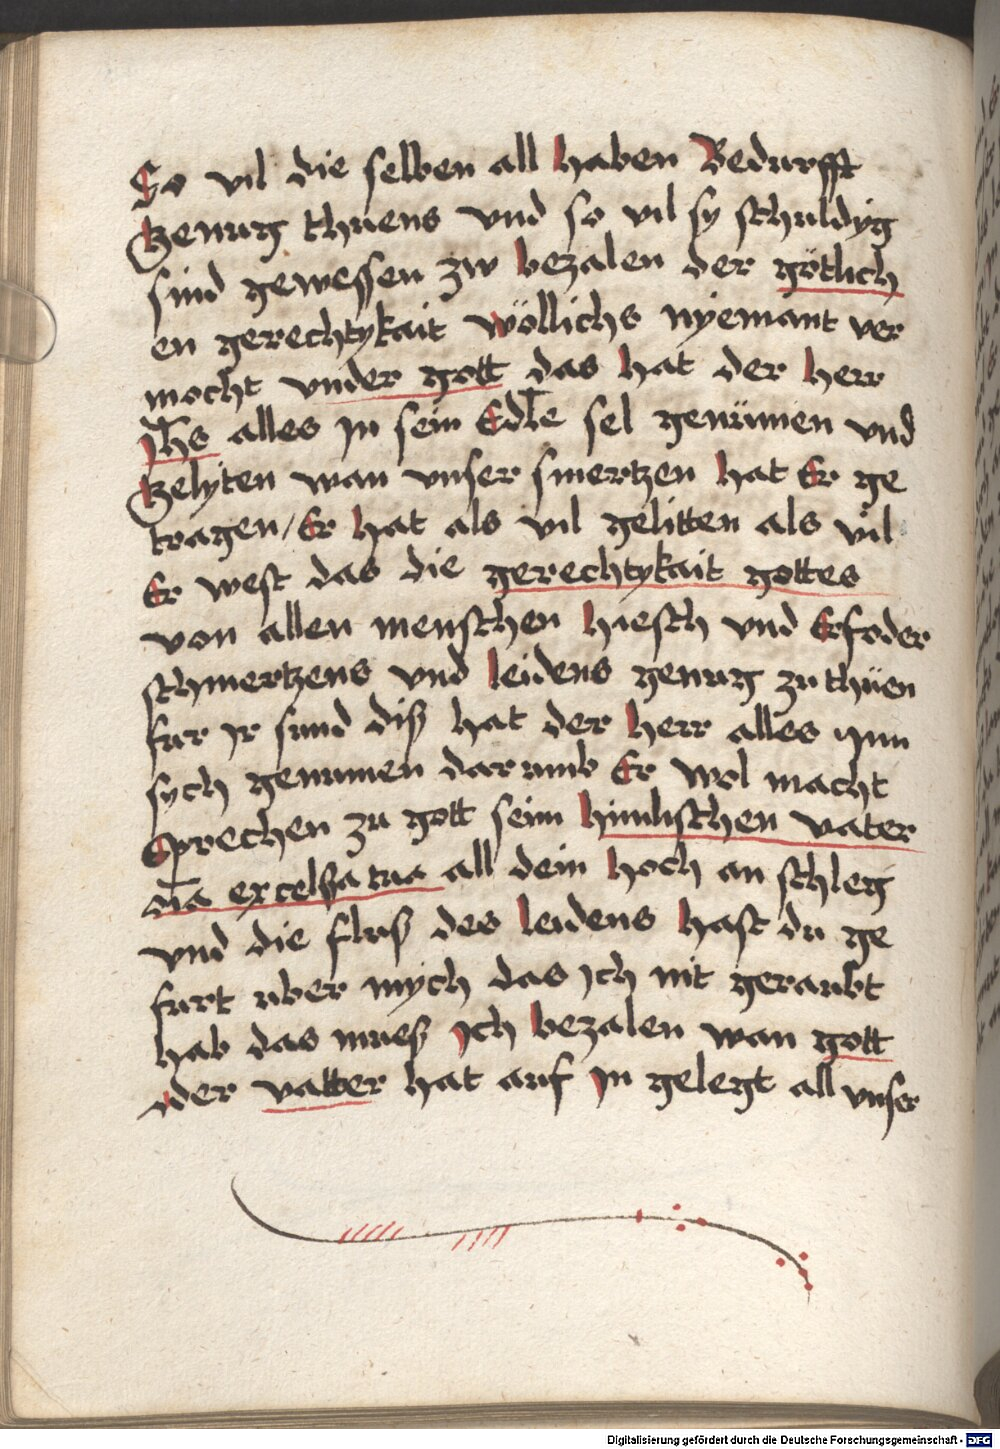 So vil die selben all haben Bedurfft
genug thuens vnd so vil sy schuldyg
sind gewessen zw bezalen der götlich
en gerechtykait wöllichs nyemant ver
mocht vnder gott das hat der herr
jhs alles jn sein Edle sel genumen vnd
gelyten wan vnser smertzen hat Er ge
tragen / Er hat als vil gelitten als vil
Er west das die gerechtykait gottes
von allen menschen hiesch vnd Erfoder
schmertzens vnd leidens genug zu thüen
fur jr sund diß hat der herr alles jnn
sych genumen dar umb Er wol macht
Sprechen zu gott seim himlischen vater
o͞ia excelsa tua all dein hoch an schleg
vnd die fluß des leidens hast du ge
furt uber mych das jch nit geraubt
hab das mueß jch bezalen wan gott
der vatter hat auf jn gelegt all vnser
Digitalisierung gefördert durch die Deutsche Forschungsgemeinschaft - DFG